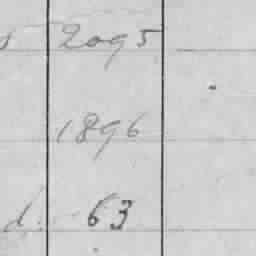 2095
1896
d. 63